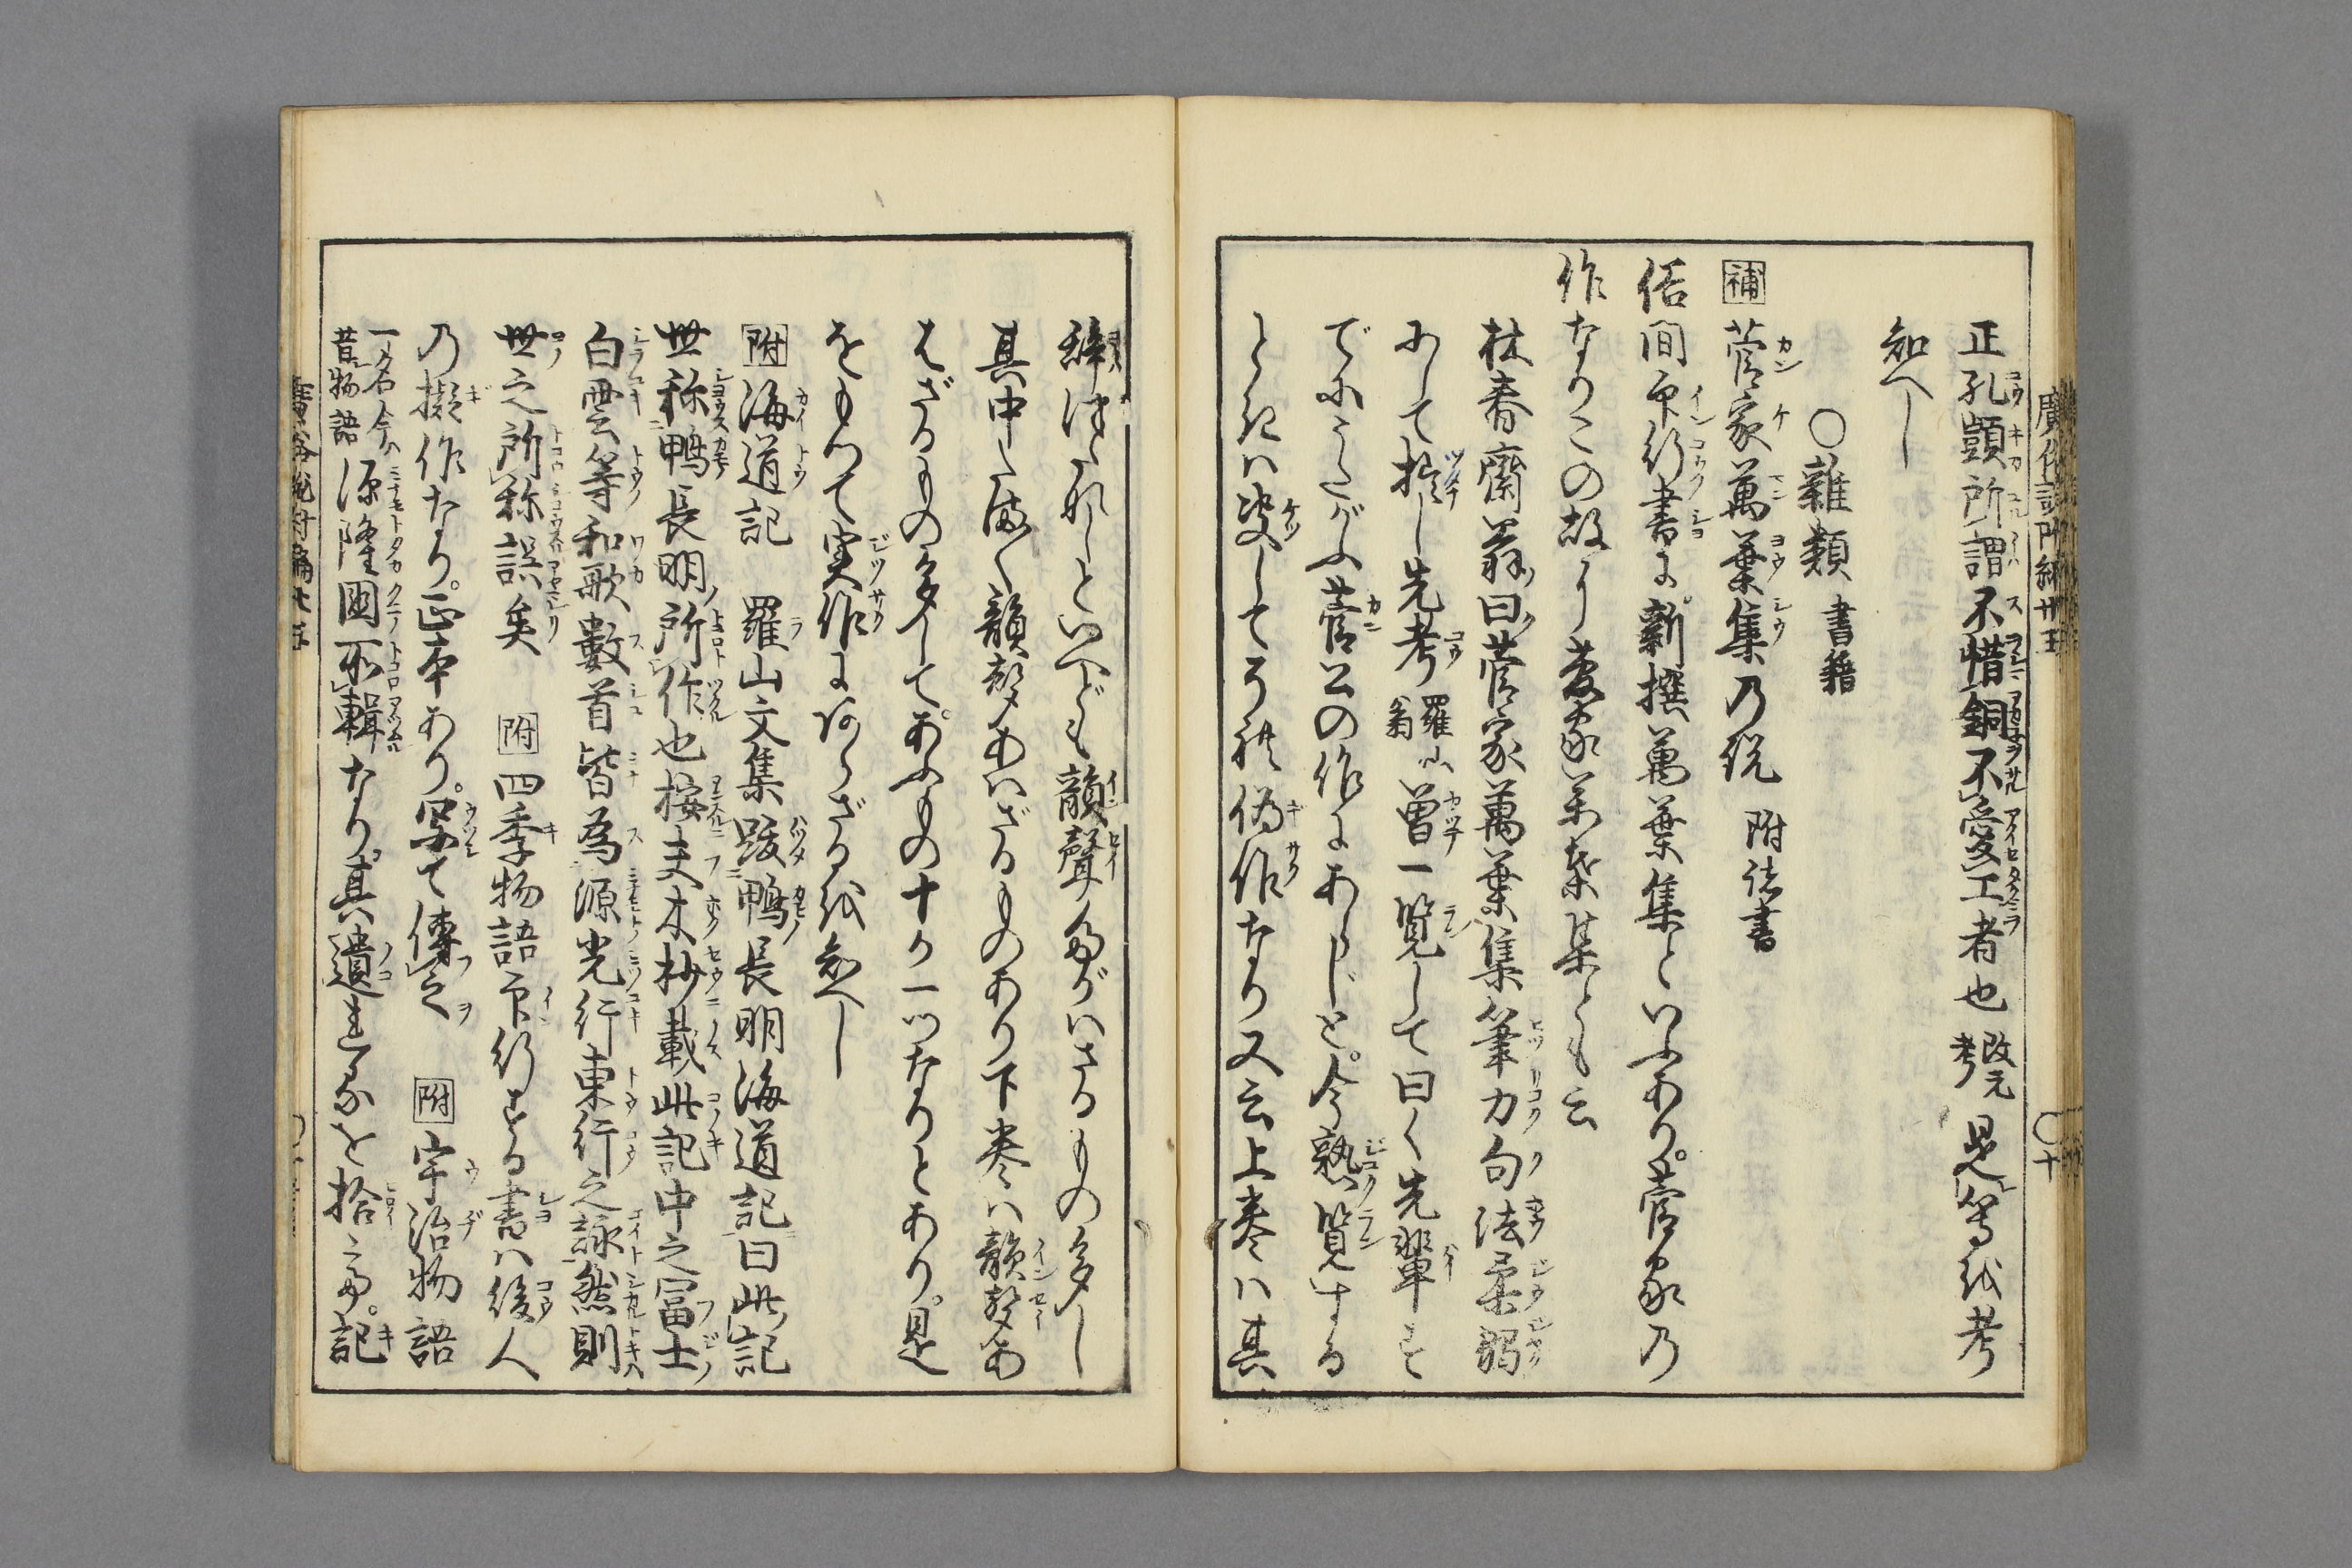 正孔顗所謂不惜銅不愛工者也 改元考 是等を考
知へし
○雜類 書籍
補 菅家萬葉集乃説 附諸書
俗間印行書に新撰萬葉集といふあり。菅家乃
作なりこの故に菅家万葉集とも云
林春齋翁曰菅家萬葉集筆力句法柔弱
にして拙し先考 羅山翁 曾一覧して曰く先輩す
でにうたがふ菅公の作にあらじと。今熟覧する
ときは決してこれ偽作なり又云上巻ハ其
辞つたなしといへども韻聲たがハさるもの多し
其中にまた韻聲あハざるものあり下巻ハ韻聲あ
はざるもの多して。あふもの十か一ツなりとあり。是
をもつて実作にあらざるを知へし
附 海道記 羅山文集跋鴨長明海道記曰此記
世称鴨長明所作也按夫木抄載此記中之冨士
白雲等和歌數首皆為源光行東行之詠然則
世之所称誤矣 附 四季物語印行する書ハ後人
乃擬作なり。正本あり。写て傳之 附 宇治物語
一名今ハ昔物語 源隆國所輯なり。其遺れるを拾ふ。記